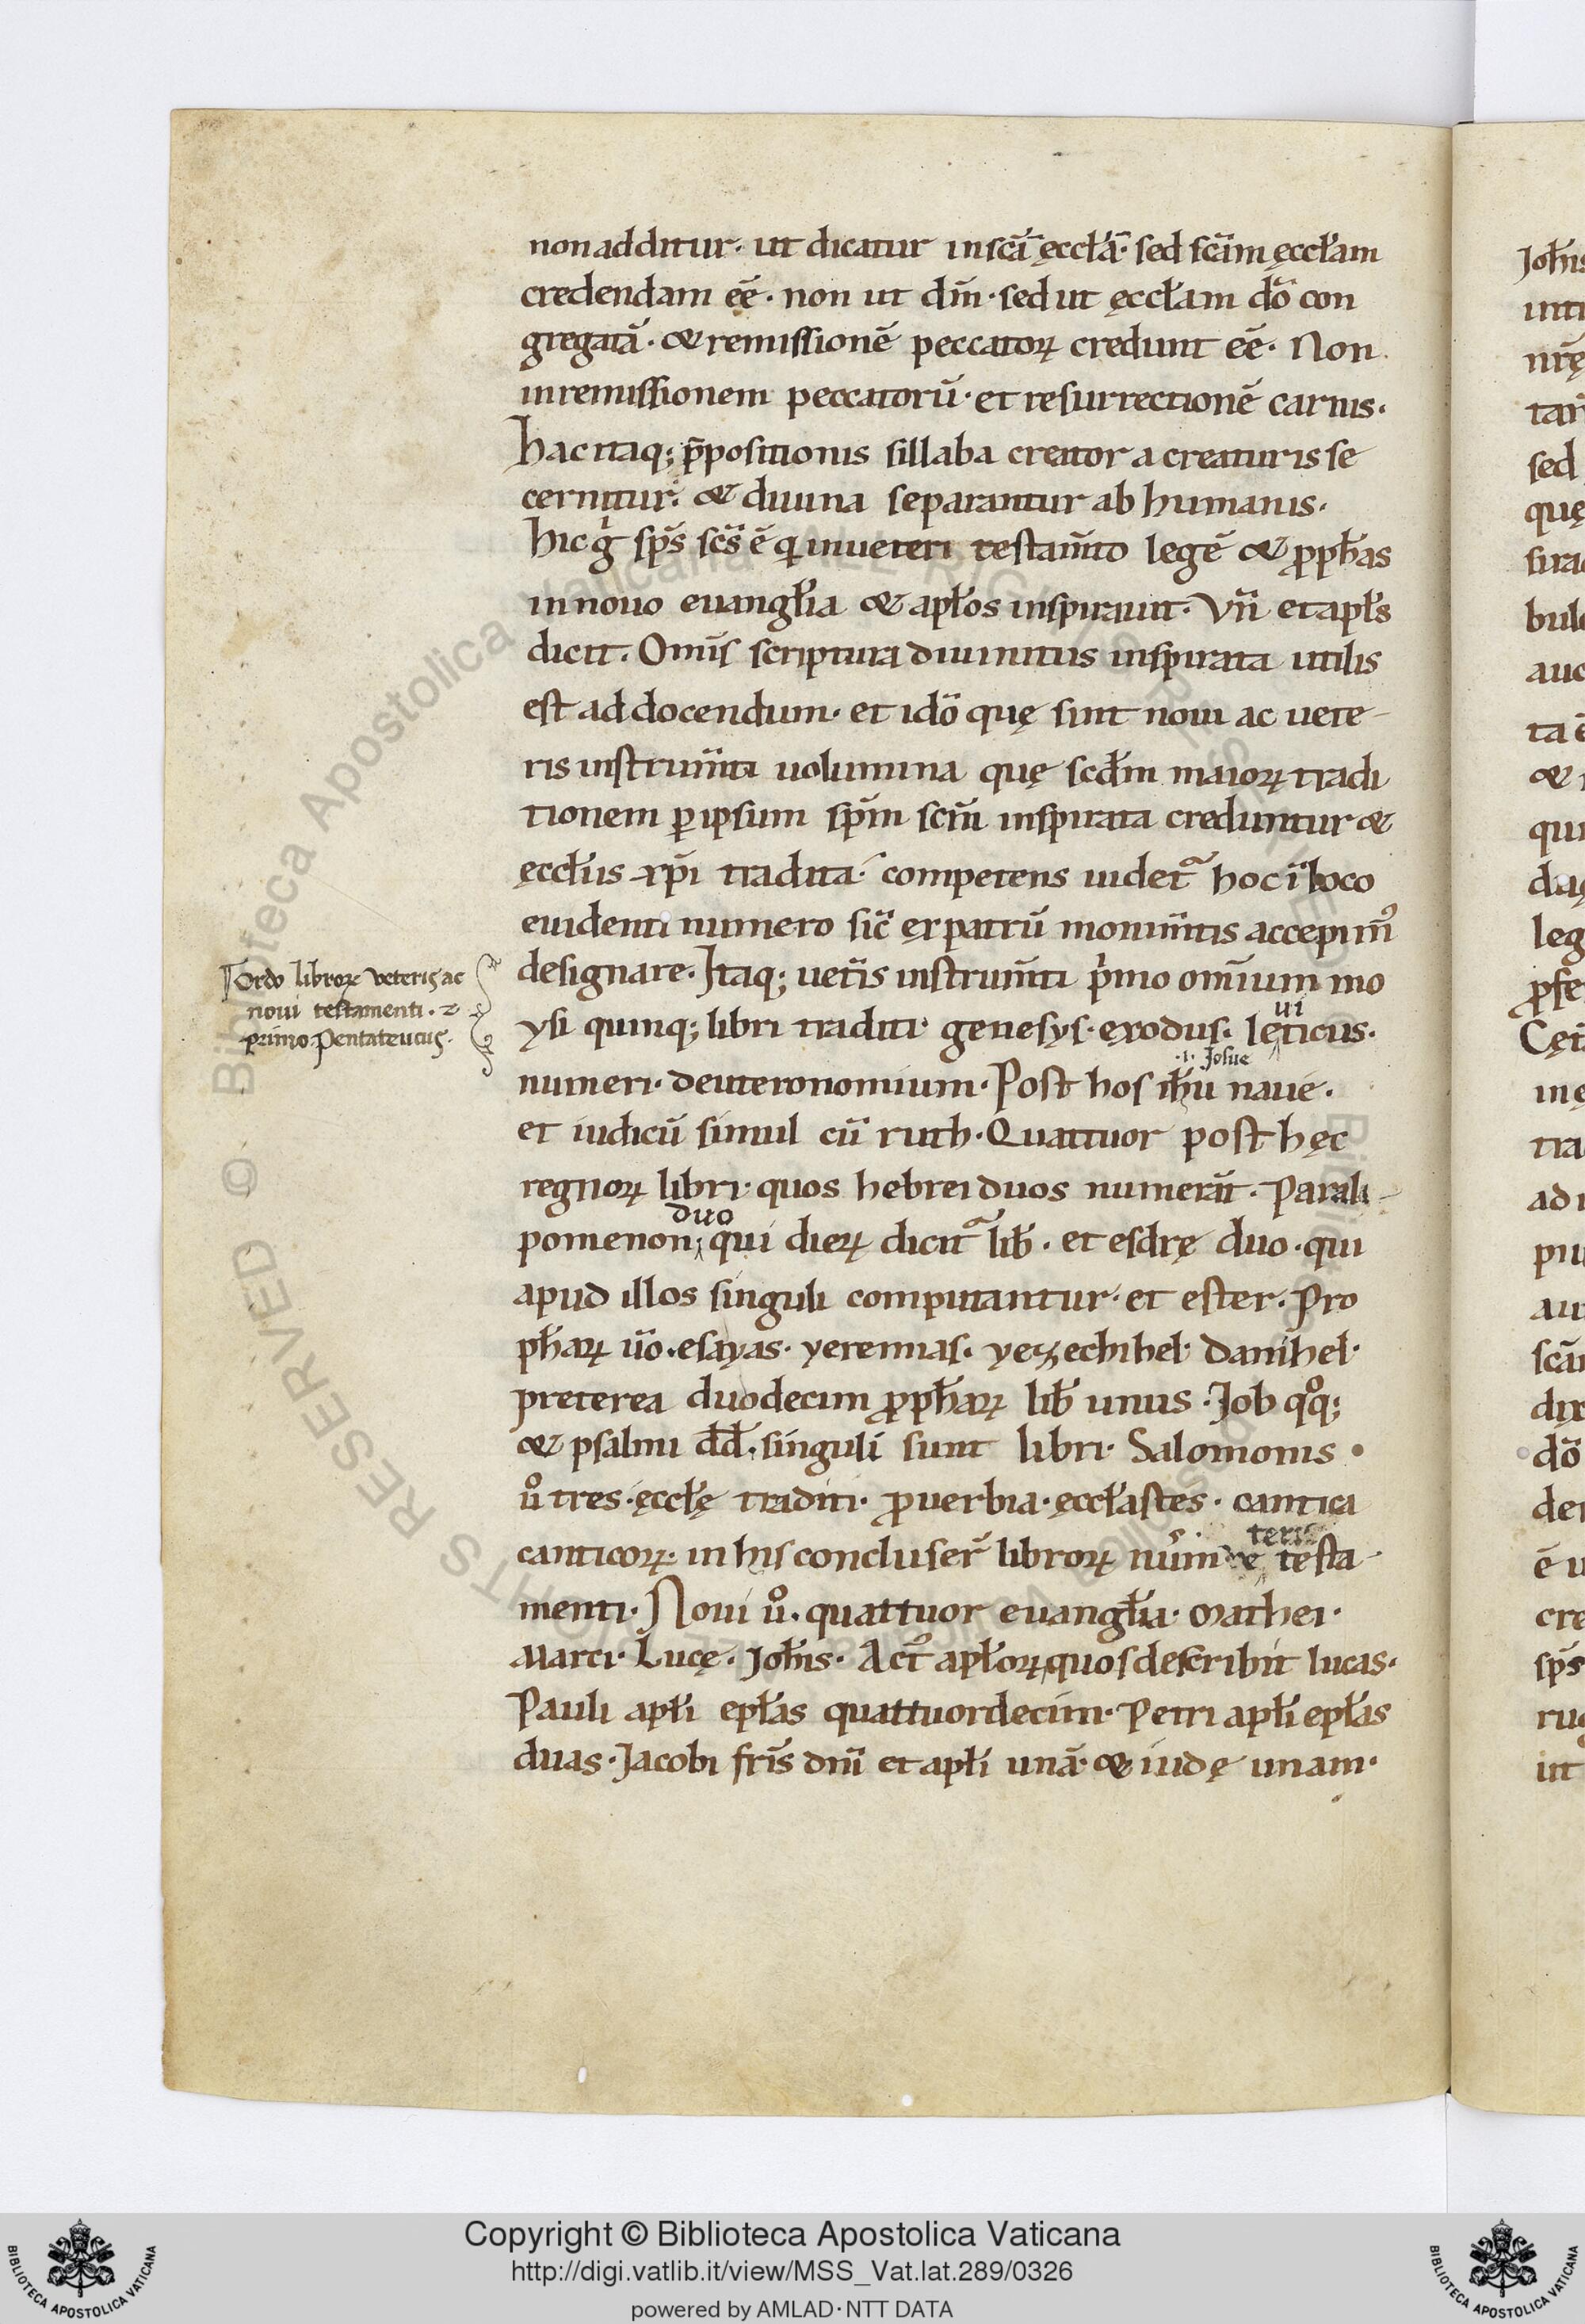 non additur· ut dicatur in scā ęccłā· sed scām ęccłam
credendam eē· non ut dm̄· sed ut ęccłam dō con
gregatā· & remissionē peccatoꝝ credunt eē· Non
in remissionem peccatorū· et resurrectionē carnis·
hac itaq; p̄positionis sillaba creator a creaturis se
cernitur· & diuina separantur ab humanis·
hic g̍ sp̄s sc̄s ē qͥ in ueteri testam̄to legē & ꝓph̄as
in nouo euangłia & apłos inspirauit· Vn̄ et apłs
dicit· Omīs scriptura diuinitus inspirata utilis
est ad docendum· et idō quę sunt noui ac uete-
ris instrum̄ti uolumina quę scdm̄ maioꝝ tradi
tionem ꝑ ipsum sp̄m scm̄ inspirata creduntur &
ęccłiis xp̄i tradita· competens uidetᷣ hoc ī loco
euidenti numero sič ex patrū monum̄tis accepim᷒
designare· Itaq; uet̄is instrum̄ti p̍mo omīum mo
Ordo libroꝝ veteris ac
noui testamenti· &
primo Pentateucus·
ysi quinq; libri traditi· genesys· exodus· leticus·
ui
numeri· deuteronomium· Post hos ih̄u naue·
·i· Josue
et iudicū simul cū ruth· Quattuor post hęc
regnoꝝ libri· quos hebrei duos numerāt· Parali-
pomenon qui dieꝝ dicitᷣ lib̄· et esdrę duo· qui
duo
apud illos singuli computantur· et ester· Pro
ph̄aꝝ ūo· esayas· yeremias· yezechihel· Danihel·
preterea duodecim ꝓph̄aꝝ lib̄ unus· Job qͦq;
& psalmi dd̄· singuli sunt libri· Salomonis·
uͦ tres· ęccłę traditi· ꝓuerbia· ęccłastes· cantica
canticoꝝ· in his concluser̄ libroꝝ num̄ ue testa-
teris
menti· Noui uͦ· quattuor euangłia· Mathei·
Marci· Lucę· Joh̄is· Act᷒ apłoꝝ quos describit lucas·
Pauli apłi epłas quattuordecim· Petri apłi epłas
duas· Jacobi fr̄is dn̄i et apłi unā· & iudę unam·
Copyright © Biblioteca Apostolica Vaticana
http://digi.vatlib.it/view/MSS_Vat.lat.289/0326
powered by AMLAD·NTT DATA
BIBLIOTECA APOSTOLICA VATICANA
BIBLIOTECA APOSTOLICA VATICANA